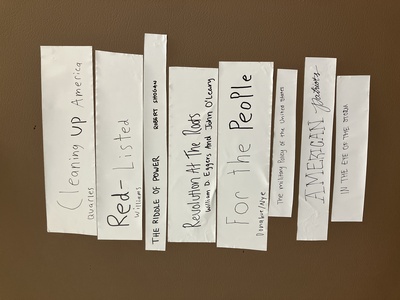 Cleaning UP America
Quarles
Red-Listed
Williams
THE RIDDLE OF POWER ROBERT SHOGAN
Revolution At The Roots
William D. Eggers And John O'Leary
For the People
Donahr/Nye
The military Policy of the United States
AMERICAN Patriots
IN THE EYE OF THE STORM